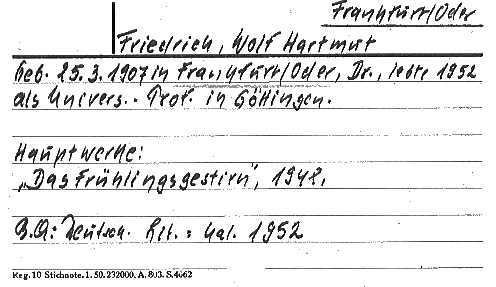 Frankfurt/Oder
Friedrich, Wolf Hartmut
Geb. 25.3.1907 in Frankfurt/Oder, Dr., lebte 1952
als Univers.-Prof. in Göttingen.
Hauptwerke:
„Das Frühlingsgestirn", 1942.
B.Q: Deutsch. Lit.: Kal. 1952
Reg. 10 Stichnote. 1. 50. 232000. A. 803. S. 4662